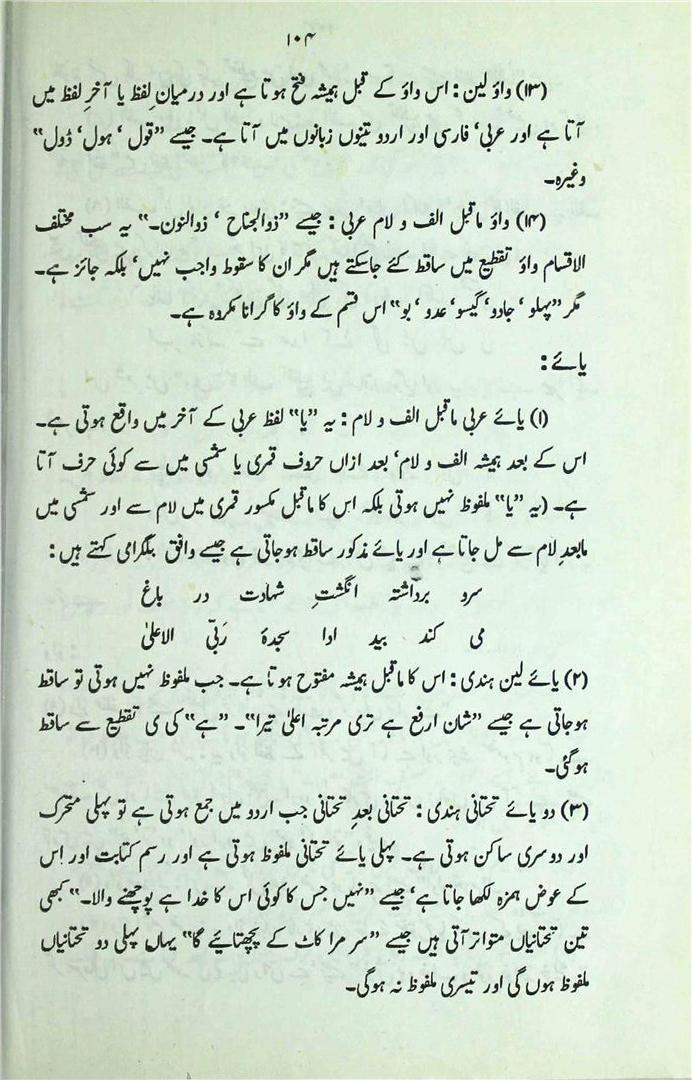 ۱۰۴
(۱۳) واؤ لین : اس واؤ کے قبل ہمیشہ فتح ہوتا ہے اور درمیانِ لفظ یا آخرِ لفظ میں
آتا ہے اور عربی‘ فارسی اور اردو تینوں زبانوں میں آتا ہے۔ جیسے ”قول‘ ہول‘ ڈول“
وغیرہ۔
(۱۴) واؤ ماقبل الف و لام عربی : جیسے ”ذوالجناح ‘ ذوالنون۔“ یہ سب مختلف
الاقسام واؤ تقطیع میں ساقط کئے جاسکتے ہیں مگر ان کا سقوط واجب نہیں‘ بلکہ جائز ہے۔
مگر ”پہلو ‘ جادو‘ گیسو‘ عدو‘ بو“ اس قسم کے واؤ کا گرانا مکروہ ہے۔
یائے :
(۱) یائے عربی ماقبل الف و لام : یہ ”یا“ لفظ عربی کے آخر میں واقع ہوتی ہے۔
اس کے بعد ہمیشہ الف و لام‘ بعد ازاں حروف قمری یا شمسی میں سے کوئی حرف آتا
ہے۔ (یہ ”یا“ ملفوظ نہیں ہوتی بلکہ اس کا ماقبل مکسور قمری میں لام سے اور شمسی میں
مابعدِ لام سے مل جاتا ہے اور یائے مذکور ساقط ہوجاتی ہے جیسے واقق بلگرامی کہتے ہیں :
سرو برداشتہ انگشتِ شہادت در باغ
می کند بید ادا سجدۂ رَبّیَ الاعلیٰ
(۲) یائے لین ہندی : اس کا ماقبل ہمیشہ مفتوح ہوتا ہے۔ جب ملفوظ نہیں ہوتی تو ساقط
ہوجاتی ہے جیسے ”شان ارفع ہے تری مرتبہ اعلیٰ تیرا“۔ ”ہے“ کی ی تقطیع سے ساقط
ہوگئی۔
(۳) دو یائے تحتانی ہندی : تحتانی بعدِ تحتانی جب اردو میں جمع ہوتی ہے تو پہلی متحرک
اور دوسری ساکن ہوتی ہے۔ پہلی یائے تحتانی ملفوظ ہوتی ہے اور رسم کتابت اور اس
کے عوض ہمزہ لکھا جاتا ہے‘ جیسے ”نہیں جس کا کوئی اس کا خدا ہے پوچھنے والا۔“ کبھی
تین تحتانیاں متواتر آتی ہیں جیسے ”سر مرا کاٹ کے پچھتایئے گا“ یہاں پہلی دو تحتانیاں
ملفوظ ہوں گی اور تیسری ملفوظ نہ ہوگی۔